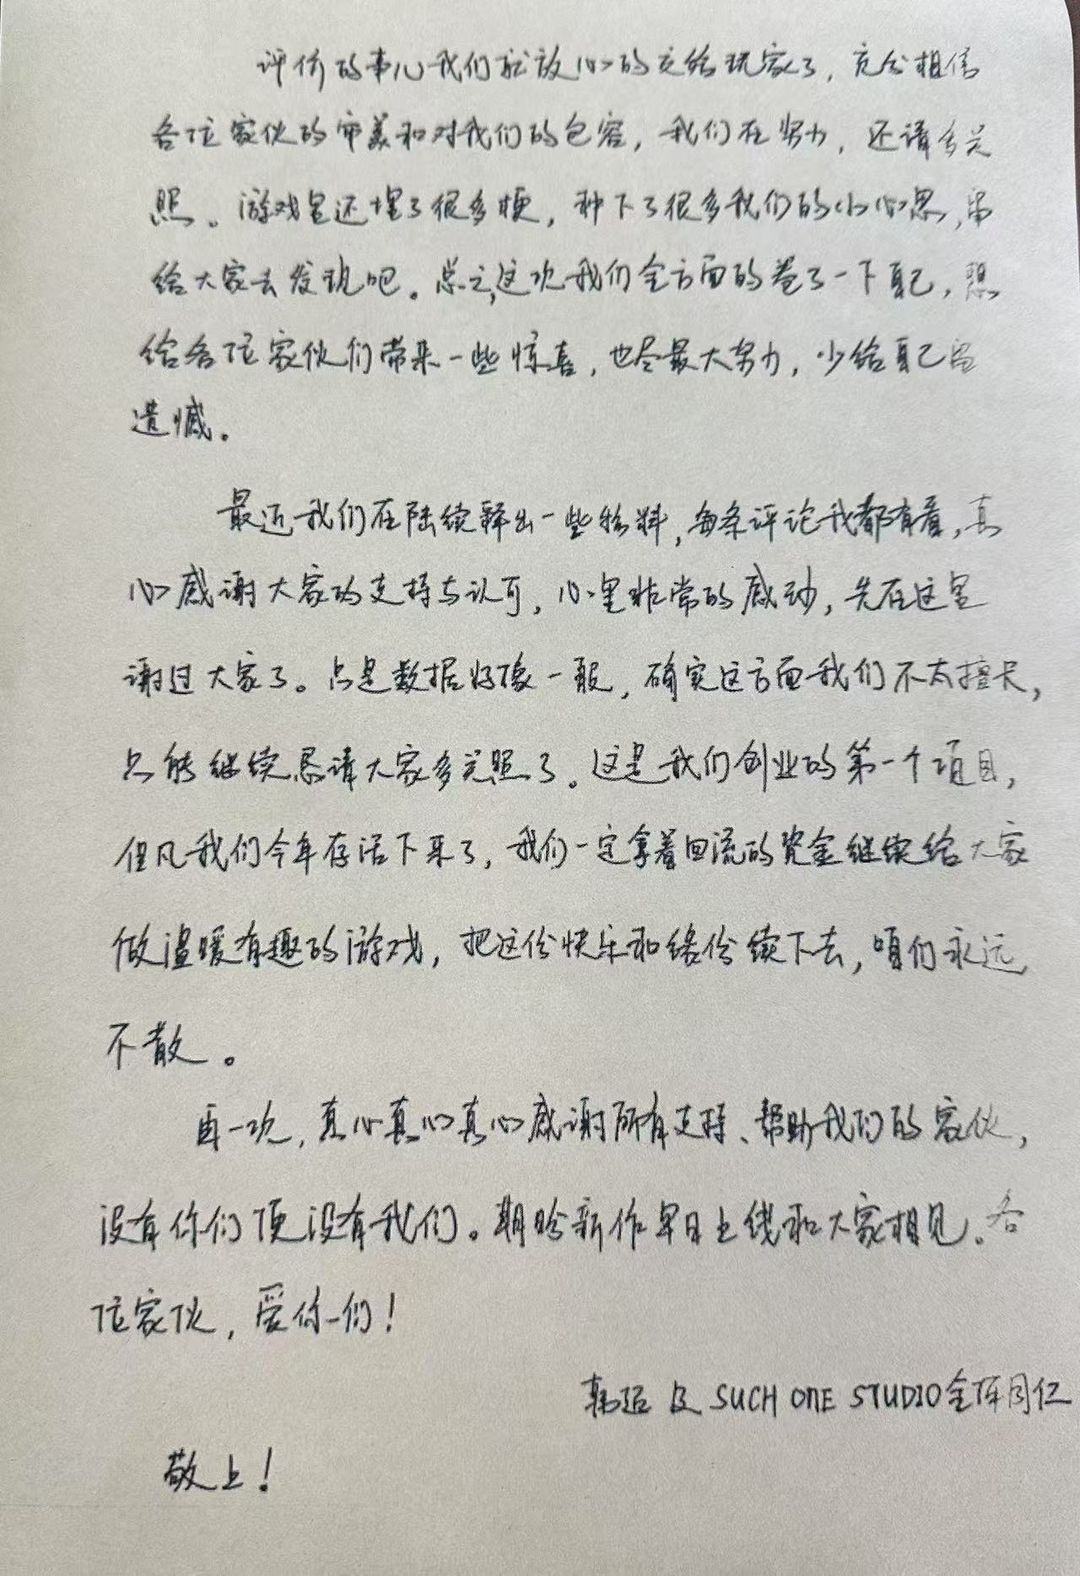 评价的事儿我们就放心的交给玩家了，充分相信
各位家伙的审美和对我们的包容，我们在努力，还请多关
照。游戏里还埋了很多梗，种下了很多我们的小心思，留
给大家去发现吧。总之，这次我们全方面的卷了一下自己，想
给各位家伙们带来一些惊喜，也尽最大努力，少给自己留
遗憾。
最近我们在陆续释出一些物料，每条评论我都有看，真
心感谢大家的支持与认可，心里非常的感动，先在这里
谢过大家了。只是数据好像一般，确实这方面我们不太擅长，
只能继续恳请大家多关照了。这是我们创业的第一个项目，
但凡我们今年存活下来了，我们一定拿着回流的资金继续给大家
做温暖有趣的游戏，把这份快乐和缘份续下去，咱们永远
不散。
再一次，真心真心真心感谢所有支持、帮助我们的家伙，
没有你们便没有我们。期盼新作早日上线和大家相见。各
位家伙，爱你们！
韩迟 及 SUCH ONE STUDIO全体同仁
敬上！